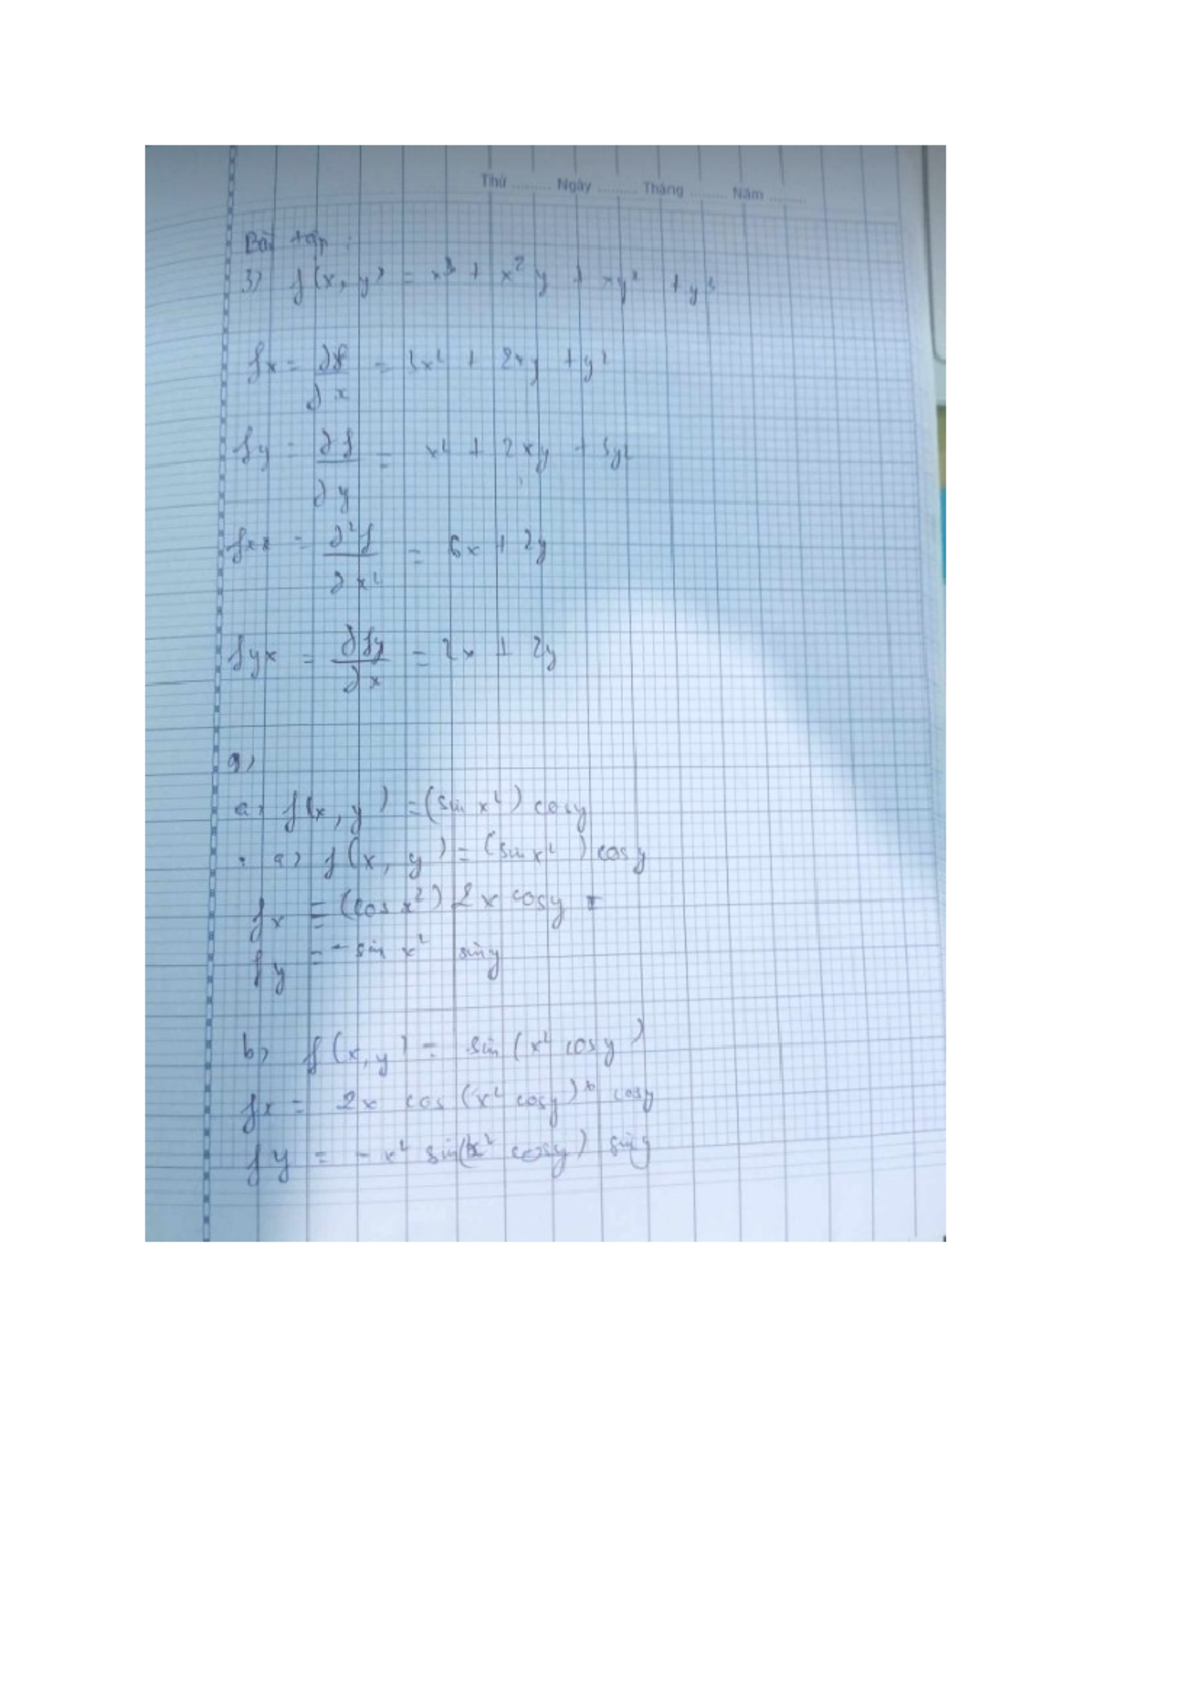 Thứ ......... Ngày ......... Tháng ........ Năm ........
Bài tập :
3) f(x, y) = x³ + x² y + xy² + y³
fx = ∂f/∂x = 3x² + 2xy + y²
fy = ∂f/∂y = x² + 2xy + 3y²
fxx = ∂²f/∂x² = 6x + 2y
fyx = ∂fy/∂x = 2x + 2y
9)
a) f(x, y) = (sin x²) cosy
a) f(x, y) = (sin x²) cosy
fx = (cos x²) 2x cosy
fy = - sin x² siny
b) f(x, y) = sin (x² cosy)
fx = 2x cos (x² cosy) cosy
fy = - x² sin(x² cosy) siny